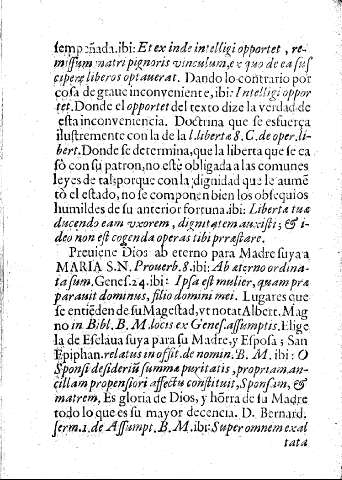 ſempeñada.ibi: Et ex inde intelligi opportet, re-
miſſum matri pignoris vinculum, ex quo de ea ſuſ
cipere liberos optauerat. Dando lo contrario por
coſa de graue inconveniente, ibi: Intelligi oppor
tet. Donde el opportet del texto dize la verdad de
eſta inconveniencia. Doctrina que ſe esfuerça
iluſtremente con la de la l. libertæ 8. C. de oper. li-
bert. Donde ſe determina, que la liberta que ſe ca
só con ſu patron, no eſtè obligada a las comunes
leyes de tal: porque con la dignidad que le aumẽ
tò el eſtado, no ſe componen bien los obſequios
humildes de ſu anterior fortuna. ibi: Libertæ tuæ
ducendo eam vxorem, dignitatem auxiſti; & i-
deo non eſt cogenda operas tibi præſtare.
Preuiene Dios ab eterno para Madre ſuya a
MARIA S.N. Prouerb. 8. ibi: Ab æterno ordina-
ta ſum. Geneſ. 24. ibi: Ipſa eſt mulier, quam præ
parauit dominus, filio domini mei. Lugares que
ſe entiẽden de ſu Mageſtad, vt notat Albert. Mag
no in Bibl. B. M. locis ex Geneſ. aſſumptis. Elige
la de Eſclaua ſuya para ſu Madre, y Eſpoſa; San
Epiphan. relatus in offit. de nomin. B. M. ibi: O
Sponſi deſiderium ſummæ puritatis, propriam an-
cillam propenſiori affectu conſtituit, Sponſam, &
matrem, Es gloria de Dios, y hõrra de ſu Madre
todo lo que es ſu mayor decencia. D. Bernard.
ſerm. 1. de Aſſumpt. B. M. ibi: Super omnem exal
tata